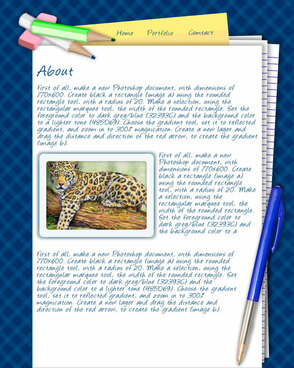 Home Portfolio Contact
About
First of all, make a new Photoshop document, with dimensions of
770x600. Create black a rectangle (image a) using the rounded
rectangle tool, with a radius of 20. Make a selection, using the
rectangular marquee tool, the width of the rounded rectangle. Set the
foreground color to dark grey/blue (32393C) and the background color
to a lighter tone (485D69). Choose the gradient tool, set it to reflected
gradient, and zoom in to 300% magnication. Create a new layer and
drag the distance and direction of the red arrow, to create the gradient
(image b).
First of all, make a new
Photoshop document, with
dimensions of 770x600. Create
black a rectangle (image a)
using the rounded rectangle
tool, with a radius of 20. Make
a selection, using the
rectangular marquee tool, the
width of the rounded rectangle.
Set the foreground color to
dark grey/blue (32393C) and
the background color to a
First of all, make a new Photoshop document, with dimensions of
770x600. Create black a rectangle (image a) using the rounded
rectangle tool, with a radius of 20. Make a selection, using the
rectangular marquee tool, the width of the rounded rectangle. Set
the foreground color to dark grey/blue (32393C) and the
background color to a lighter tone (485D69). Choose the gradient
tool, set it to reflected gradient, and zoom in to 300%
magnication. Create a new layer and drag the distance and
direction of the red arrow, to create the gradient (image b).